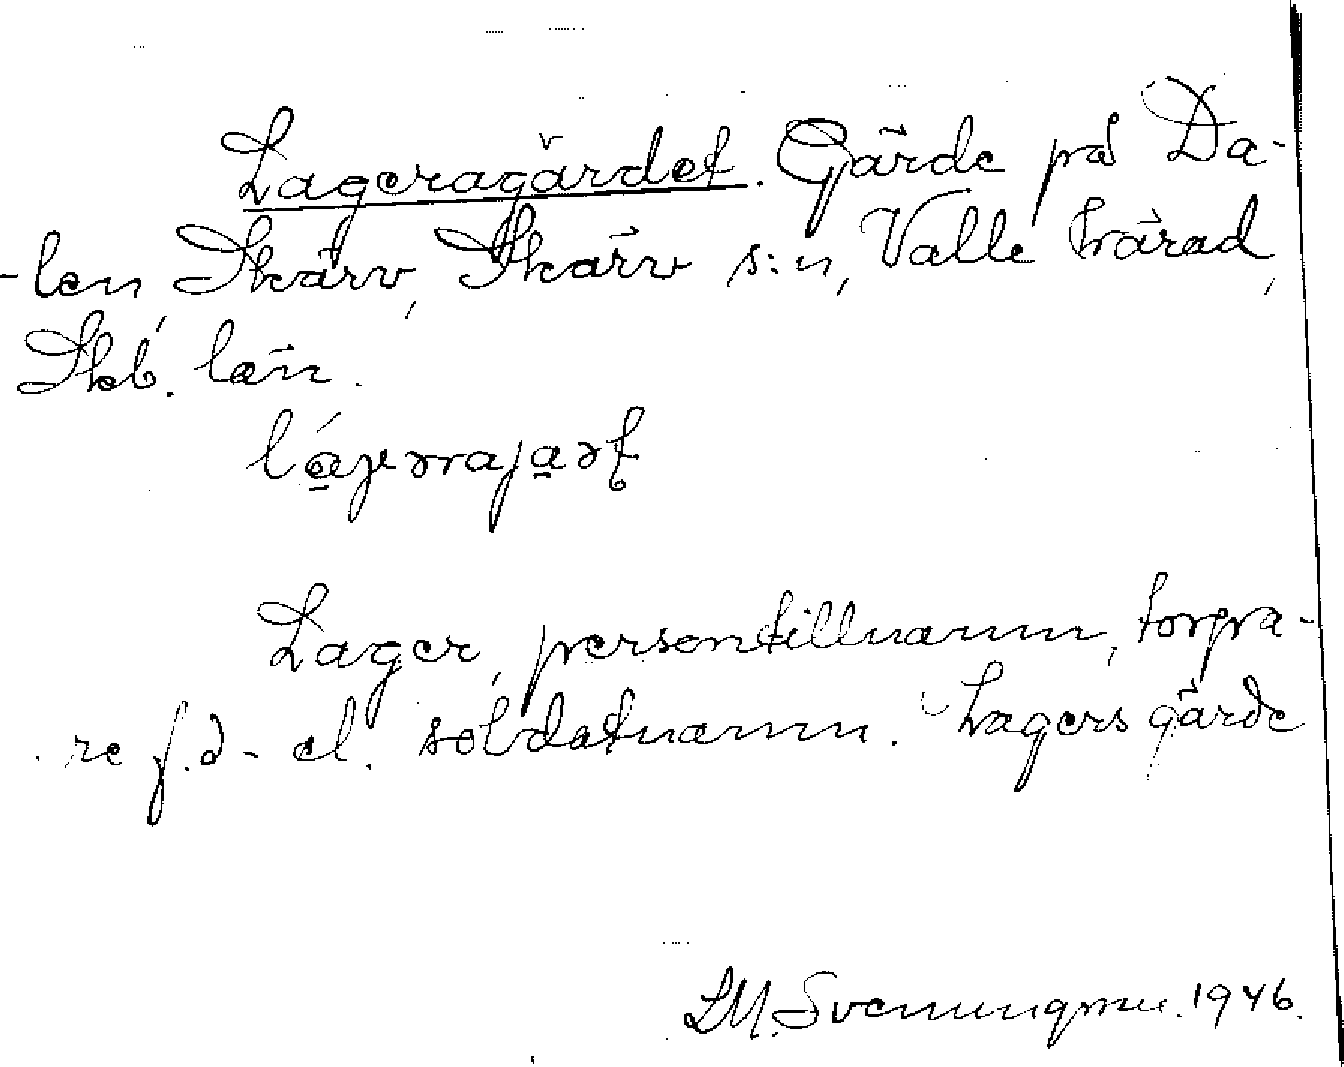 Lageragärdet. Gärde på Da-
-len, Skärv, Skärv s:n, Valle härad,
Skb. län.
Lager, persontillnamn, torpa-
re f.d- el. soldatnamn. Lagers gärde
LM. Svenungsson. 1946.